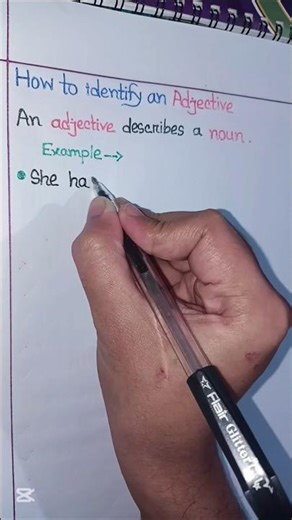 How to identify an Adjective
An adjective describes a noun.
Example -->
• She ha
☆ Flair Glitter